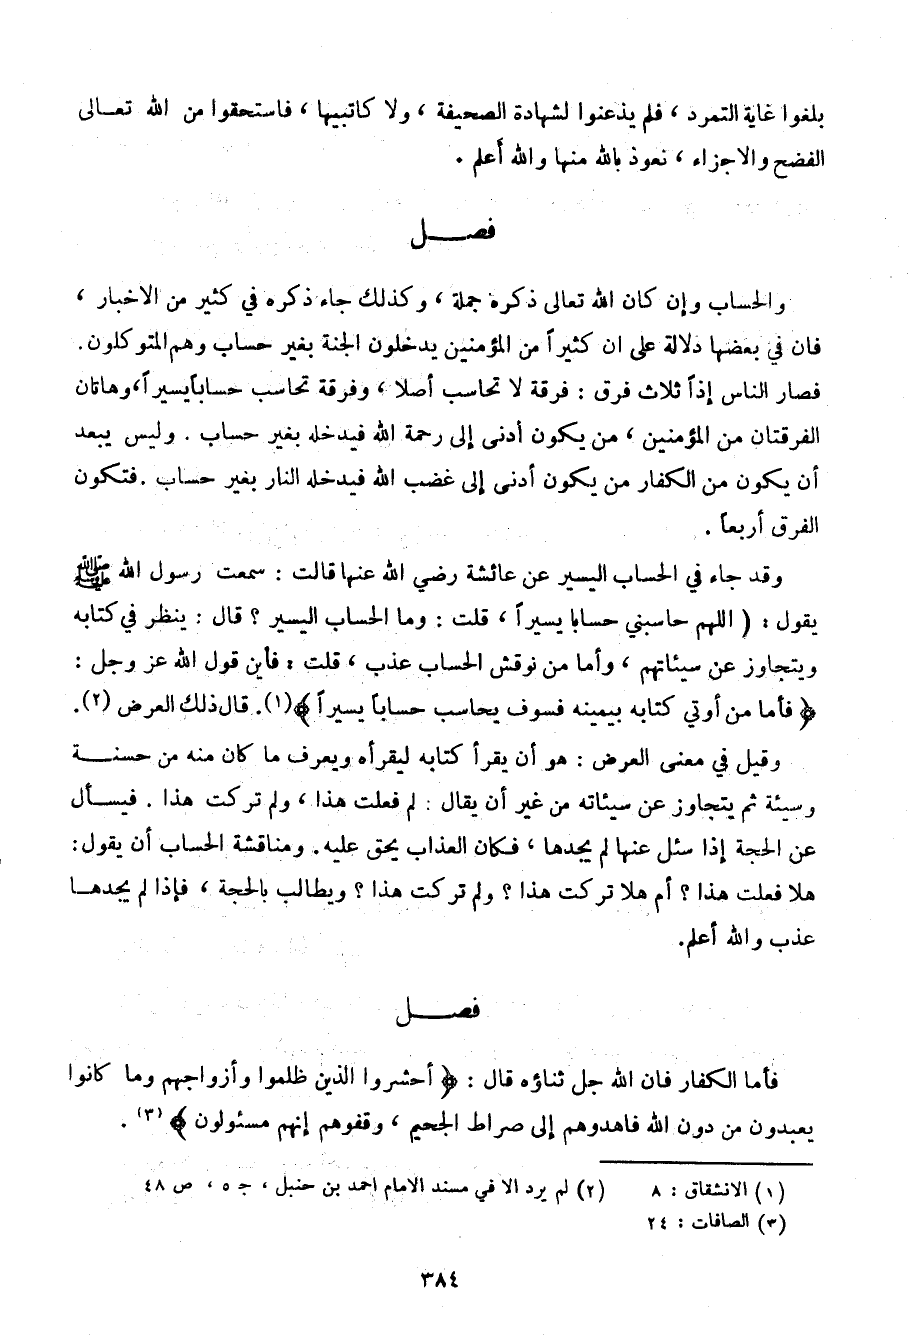 بلغوا غاية التمرد ، فلم يذعنوا لشهادة الصحيفة ، ولا كاتبيها ، فاستحقوا من الله تعـالى
الفضح والاجزاء ، نعوذ بالله منها والله أعلم .
فصـــل
والحساب وإن كان الله تعالى ذكره جملة ، وكذلك جاء ذكره في كثير من الاخبار ،
فان في بعضها دلالة على ان كثيراً من المؤمنين يدخلون الجنة بغير حساب وهم المتوكلون .
فصار الناس إذاً ثلاث فرق : فرقة لا تحاسب أصلا ، وفرقة تحاسب حساباً يسيراً ، وهاتان
الفرقتان من المؤمنين ، من يكون أدنى إلى رحمة الله فيدخله بغير حساب . وليس يبعد
أن يكون من الكفار من يكون أدنى إلى غضب الله فيدخله النار بغير حساب . فتكون
الفرق أربعاً .
وقد جاء في الحساب اليسير عن عائشة رضي الله عنها قالت : سمعت رسول الله ﷺ
يقول : ( اللهم حاسبني حسابا يسيراً ، قلت : وما الحساب اليسير ؟ قال : ينظر في كتابه
ويتجاوز عن سيئاتهم ، وأما من نوقش الحساب عذب ، قلت : فأين قول الله عز وجل :
﴿ فأما من أوتي كتابه بيمينه فسوف يحاسب حساباً يسيراً ﴾(١). قال ذلك العرض (٢).
وقيل في معنى العرض : هو أن يقرأ كتابه ليقرأه ويعرف ما كان منه من حسنـــة
وسيئة ثم يتجاوز عن سيئاته من غير أن يقال : لم فعلت هذا ، ولم تركت هذا . فيسـأل
عن الحجة إذا سئل عنها لم يجدها ، فكان العذاب يحق عليه. ومناقشة الحساب أن يقول:
هلا فعلت هذا ؟ أم هلا تركت هذا ؟ ولم تركت هذا ؟ ويطالب بالحجة ، فإذا لم يجدهـا
عذب والله أعلم.
فصـــل
فأما الكفار فان الله جل ثناؤه قال : ﴿ أحشروا الذين ظلموا وأزواجهم وما كانوا
يعبدون من دون الله فاهدوهم إلى صراط الجحيم ، وقفوهم إنهم مسئولون ﴾ (٣) .
(١) الانشقاق : ٨ (٢) لم يرد الا في مسند الامام احمد بن حنبل ، جـ ٥ ، ص ٤٨
(٣) الصافات : ٢٤
٣٨٤